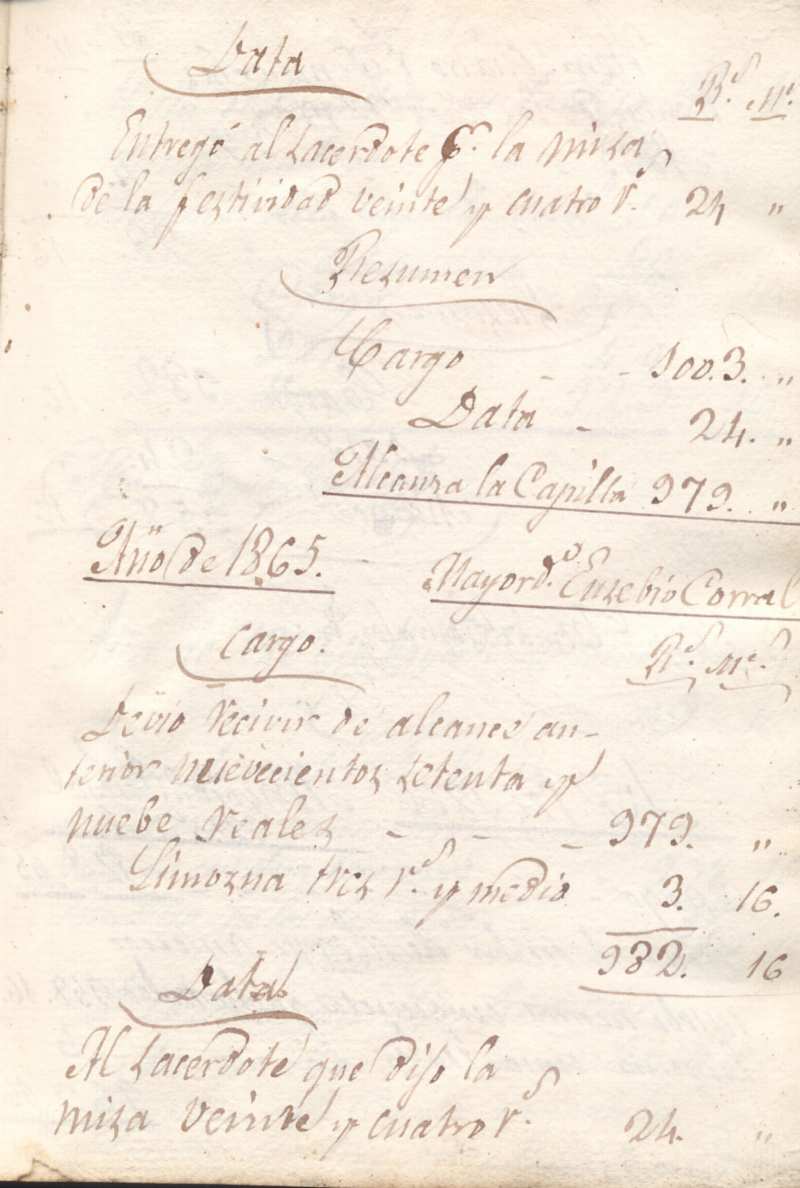 Data
R.s M.s
Entregó al sacerdote p.r la misa
de la festividad veinte y cuatro r.s 24 "
Resumen
Cargo - - 1003. "
Data - 24. "
Alcanza la Capilla 979. "
Año de 1865. Mayord.o Eusebio Corral
Cargo.
R.s M.s
Devio recivir de alcance an-
terior nuevecientos setenta y
nuebe reales - - - 979. "
Limosna tres r.s y medio 3. 16.
982. 16
Data
Al sacerdote que dijo la
misa veinte y cuatro r.s 24. "